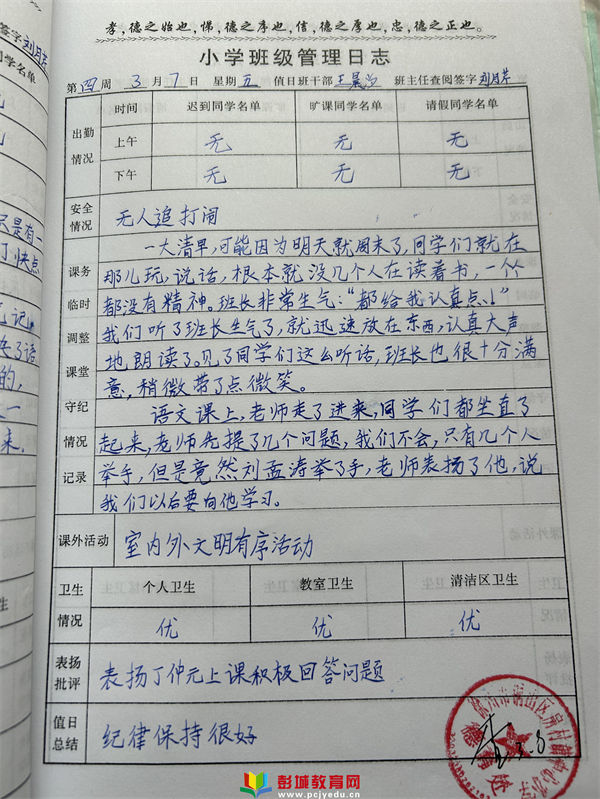 孝,德之始也,悌,德之序也,信,德之厚也,忠,德之正也。
小学班级管理日志
第四周 3月7日 星期五 值日班干部王晨汐 班主任查阅签字刘月芹
出勤情况 时间 迟到同学名单 旷课同学名单 请假同学名单
上午 无 无 无
下午 无 无 无
安全情况 无人追打闹
课务临时调整课堂守纪情况记录
一大清早,可能因为明天就周末了,同学们就在
那儿玩,说话,根本就没几个人在读着书,一个个
都没有精神。班长非常生气:“都给我认真点!”
我们听了班长生气了,就迅速放在东西,认真大声
地朗读了。见了同学们这么听话,班长也很十分满
意,稍微带了点微笑。
语文课上,老师走了进来,同学们都坐直了
起来,老师先提了几个问题,我们不会,只有几个人
举手,但是竟然刘孟涛举了手,老师表扬了他,说
我们以后要向他学习。
课外活动 室内外文明有序活动
卫生情况 个人卫生 教室卫生 清洁区卫生
优 优 优
表扬批评 表扬丁仲元上课积极回答问题
值日总结 纪律保持很好
彭城教育网
www.pcjyedu.cn